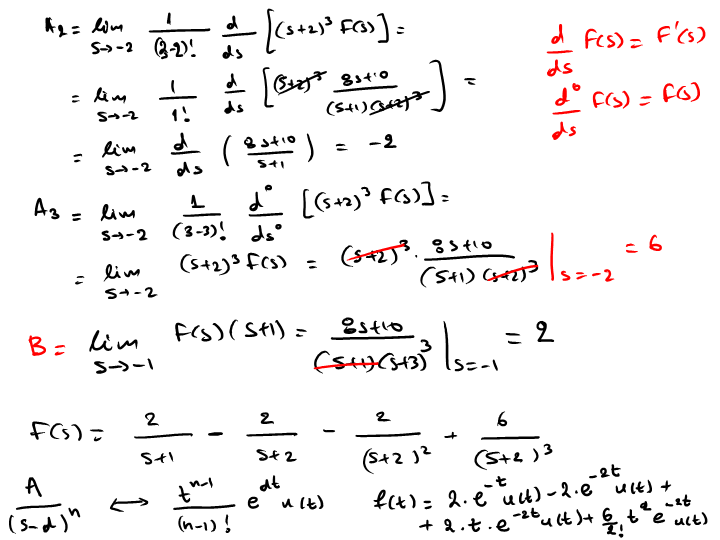 A₂ = lim_{s→-2} 1/(3-2)! d/ds [(s+2)³ F(s)] =
= lim_{s→-2} 1/1! d/ds [(s+2)³ (8s+10)/((s+1)(s+2)³)] =
= lim_{s→-2} d/ds ((8s+10)/(s+1)) = -2
d/ds F(s) = F'(s)
d⁰/ds F(s) = F(s)
A₃ = lim_{s→-2} 1/(3-3)! d⁰/ds⁰ [(s+2)³ F(s)] =
= lim_{s→-2} (s+2)³ F(s) = (s+2)³ · (8s+10)/((s+1)(s+2)³) |_{s=-2} = 6
B = lim_{s→-1} F(s)(s+1) = (8s+10)/((s+1)(s+3)³) |_{s=-1} = 2
F(s) = 2/(s+1) - 2/(s+2) - 2/(s+2)² + 6/(s+2)³
A/(s-α)ⁿ ↔ tⁿ⁻¹/(n-1)! e^{αt} u(t)
f(t) = 2·e^{-t} u(t) - 2·e^{-2t} u(t) +
+ 2·t·e^{-2t} u(t) + 6/2! t² e^{-2t} u(t)